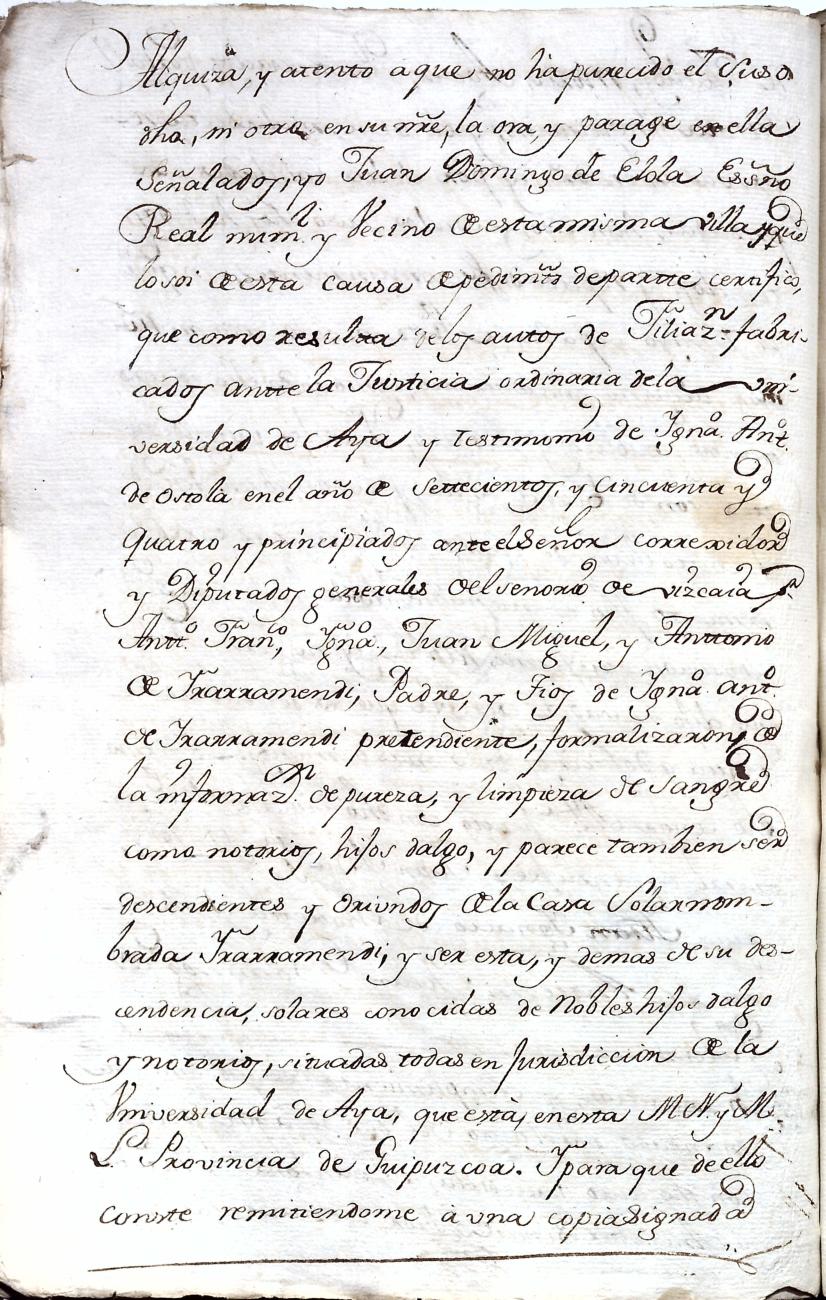 Alquiza, y atento a que no ha parecido el Suso
dho, ni otro en su nr̃e, la ora, y parage en ella
Señalados, yo Juan Domingo de Elola Essño
Real num.l y Vecino de esta misma villa, y que
lo soi de esta causa de pedimto de partte certifico,
que como resulta de los autos de Filiaz.n fabri-
cados antte la Justicia ordinaria de la vni-
versidad de Aya y testimonio de Ygnõ. Antõ.
de Ostola en el año de settecientos, y cincuenta y
quatro y principiados ante el Señor correxidor
y Diputados generales del senorio de vizcaia pr.
Anttõ. Franco, Ygnõ., Juan Miguel, y Anttonio
de Yrarramendi, Padre, y Fijos de Ygnõ. antõ.
de Yrarramendi pretendiente, formalizaron, de
la informaz.on de pureza, y limpieza de sangre
como notorios, hijos dalgo, y parece tambien ser
descendientes y Oriundos de la Casa Solar nom-
brada Yrarramendi, y ser esta, y demas de su des-
cendencia, solares conocidas de Nobles hijos dalgo
y notorios, situadas todas en Jurisdiccion de la
Vniversidad de Aya, que està, en esta M.N. y M.
L. Provincia de Guipuzcoa. Y para que de ello
conste remitiendome à vna copia Signada